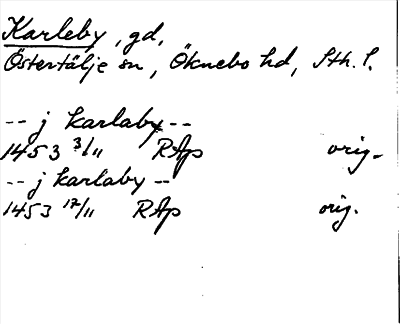 Karleby, gd,
Östertälje sn, Öknebo hd, Sth. l.
-- j karlaby --
1453 3/11 RAp orig.
-- j karlaby --
1453 17/11 RAp orig.